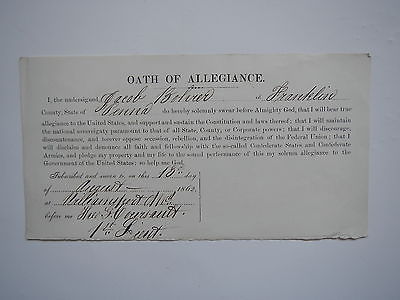 OATH OF ALLEGIANCE.
I, the undersigned, Jacob Bohrer of Franklin
County, State of Penna do hereby solemnly swear before Almighty God, that I will bear true
allegiance to the United States, and support and sustain the Constitution and laws thereof; that I will maintain
the national sovereignty paramount to that of all State, County, or Corporate powers; that I will discourage,
discountenance, and forever oppose secession, rebellion, and the disintegration of the Federal Union; that I
will disclaim and denounce all faith and fellowship with the so-called Confederate States and Confederate
Armies, and pledge my property and my life to the sound performance of this my solemn allegiance to the
Government of the United States; so help me God.
Subscribed and sworn to on this day
of August 1862,
at Williamsport Md
before me
1st Lieut